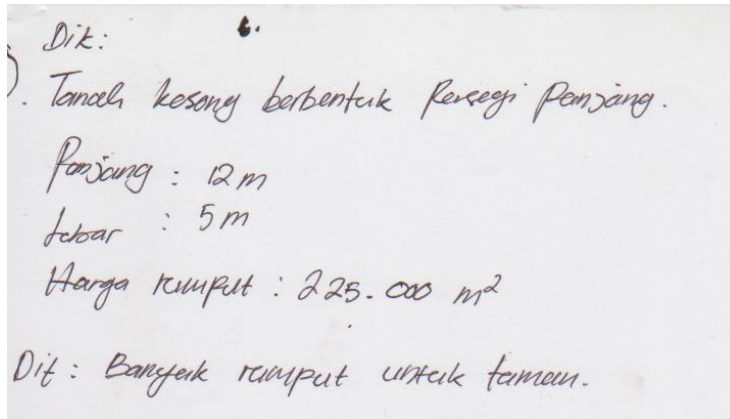 Dik:
. Tanah kosong berbentuk Persegi Panjang.
Panjang : 12 m
Lebar : 5 m
Harga rumput : 225.000 m²
Dit : Banyak rumput untuk taman.